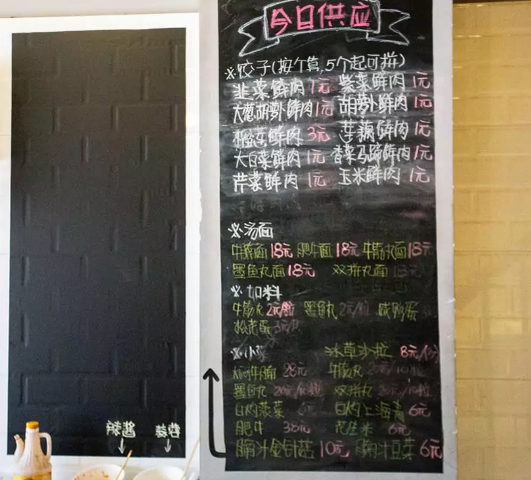 今日供应
※饺子(按个算,5个起可拼)
韭菜鲜肉 1元 紫菜鲜肉 1元
大葱胡萝卜鲜肉 1元 胡萝卜鲜肉 1元
鲜肉 3元 莲藕鲜肉 1元
大白菜鲜肉 1元 香菜马蹄鲜肉 1元
芹菜鲜肉 1元 玉米鲜肉 1元
※汤面
牛腩面 18元 肥牛面 18元 牛筋丸面 18元
墨鱼丸面 18元 双拼丸面
※加料
牛筋丸 2元/粒 墨鱼丸 2元/粒 咸鸭蛋
松花蛋 3元/个
※小菜 冰草沙拉 8元/份
焖牛腩 28元 牛筋丸
墨鱼丸 双拼丸
白灼菠菜 6元 白灼上海青 6元
肥牛 38元 花生米 6元
金针菇 10元 豆芽 6元
辣酱